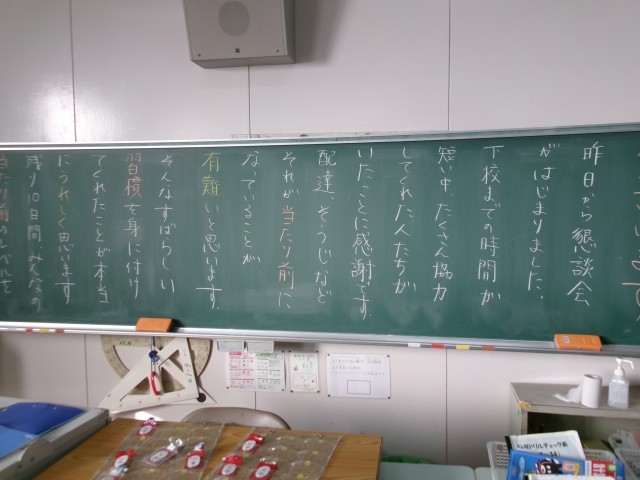 昨日から懇談会
がはじまりました。
下校までの時間が
短い中、たくさん協力
してくれた人たちが
いたことに感謝です。
配達、そうじなど
それが当たり前に
なっていることが
有難いと思います。
そんなすばらしい
習慣を身に付け
てくれたことが本当
にうれしく思います
残り10日間、みんなの
当たり前のレベルを